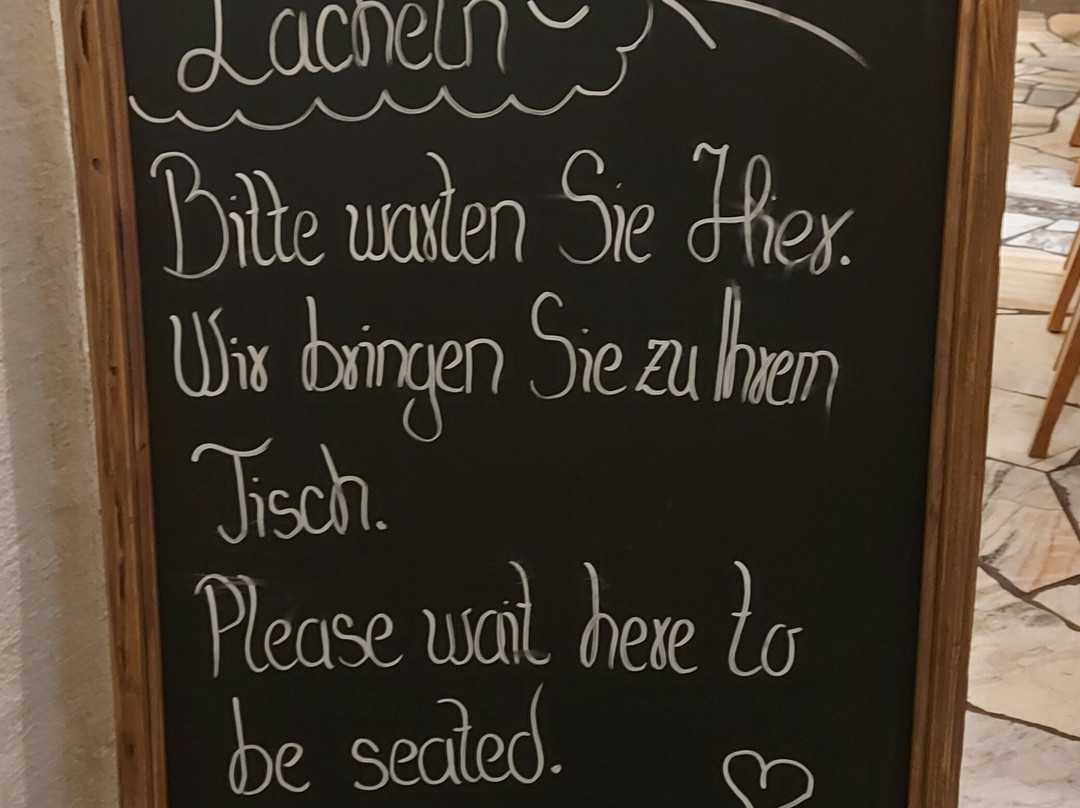 Lächeln
Bitte warten Sie Hier.
Wir bringen Sie zu Ihrem
Tisch.
Please wait here to
be seated.